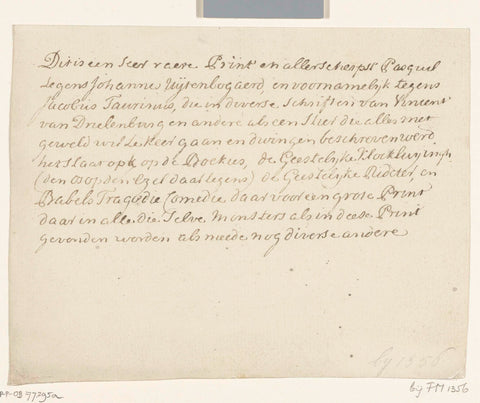 Dit is een seer raere Print en allerscherpst Pasquil
tegens Johannes Uijtenbogaerd, en voornamelijk tegens
Jacobus Taurinus, die in diverse schriften van Vincent
van Drielenburg en andere als een Stier die alles met
geweld wil te keer gaan en dwingen beschreven werd
het slaat ook op de Boekies, de Geestelijke
(den op den Ezel daar tegens) de Geestelijke Ridder, en
Babels Tragedie Comedie, daar voor een grote Print
daar in alle die selve Monsters als in deese Print
gevonden worden als meede nog diverse andere
by 1356
RP-OB-77295a
bij FM 1356